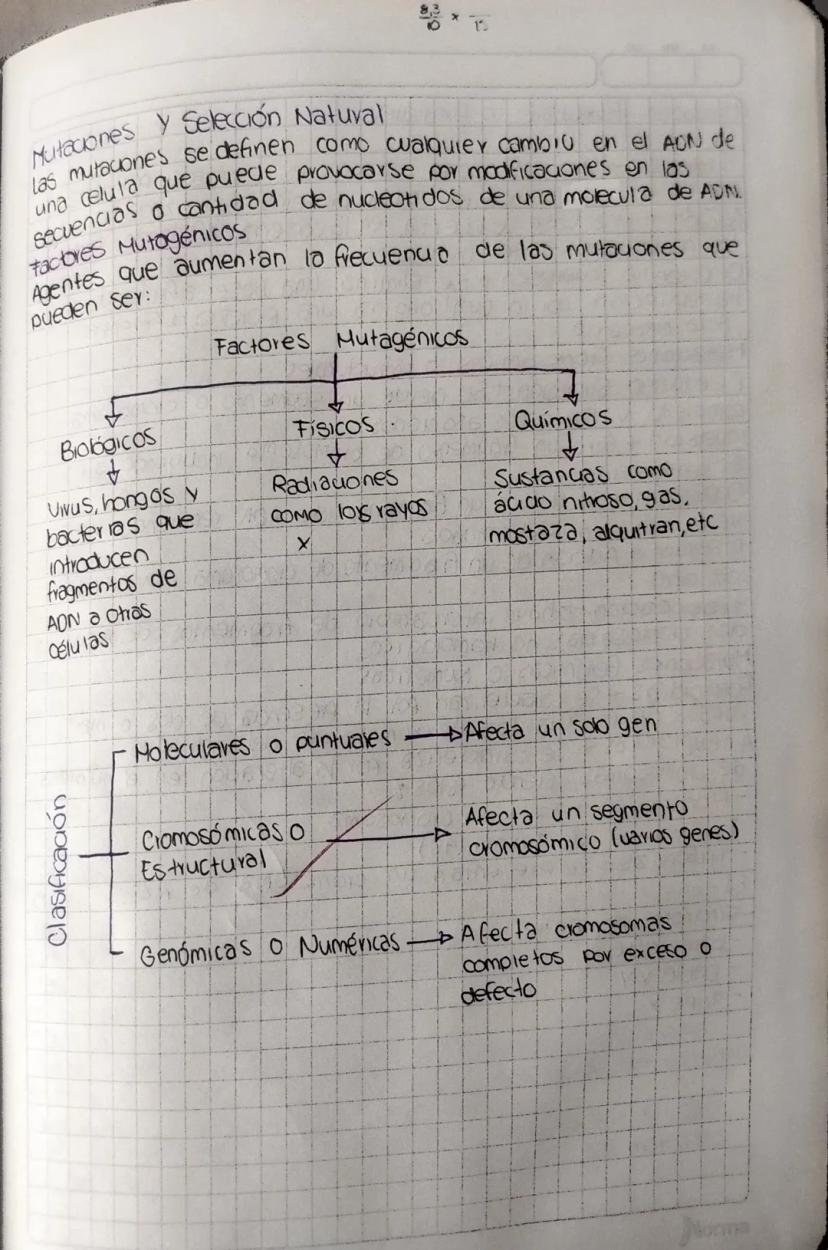 8,3/10 ×
Mutaciones y Selección Natural
las mutaciones se definen como cualquier cambio en el ADN de
una celula que puede provocarse por modificaciones en las
secuencias o cantidad de nucleotidos de una molecula de ADN.
Factores Mutagénicos
Agentes que aumentan la frecuencia de las mutaciones que
pueden ser:
Factores Mutagénicos
Biológicos
Físicos
Químicos
Virus, hongos y
bacterias que
introducen
fragmentos de
ADN a otras
células
Radiaciones
como los rayos
x
Sustancias como
ácido nitroso, gas,
mostaza, alquitran, etc
Clasificación
Moleculares o puntuales
Afecta un solo gen
Cromosómicas o
Estructural
Afecta un segmento
cromosómico (varios genes)
Genómicas o Numéricas
Afecta cromosomas
completos por exceso o
defecto
Norma